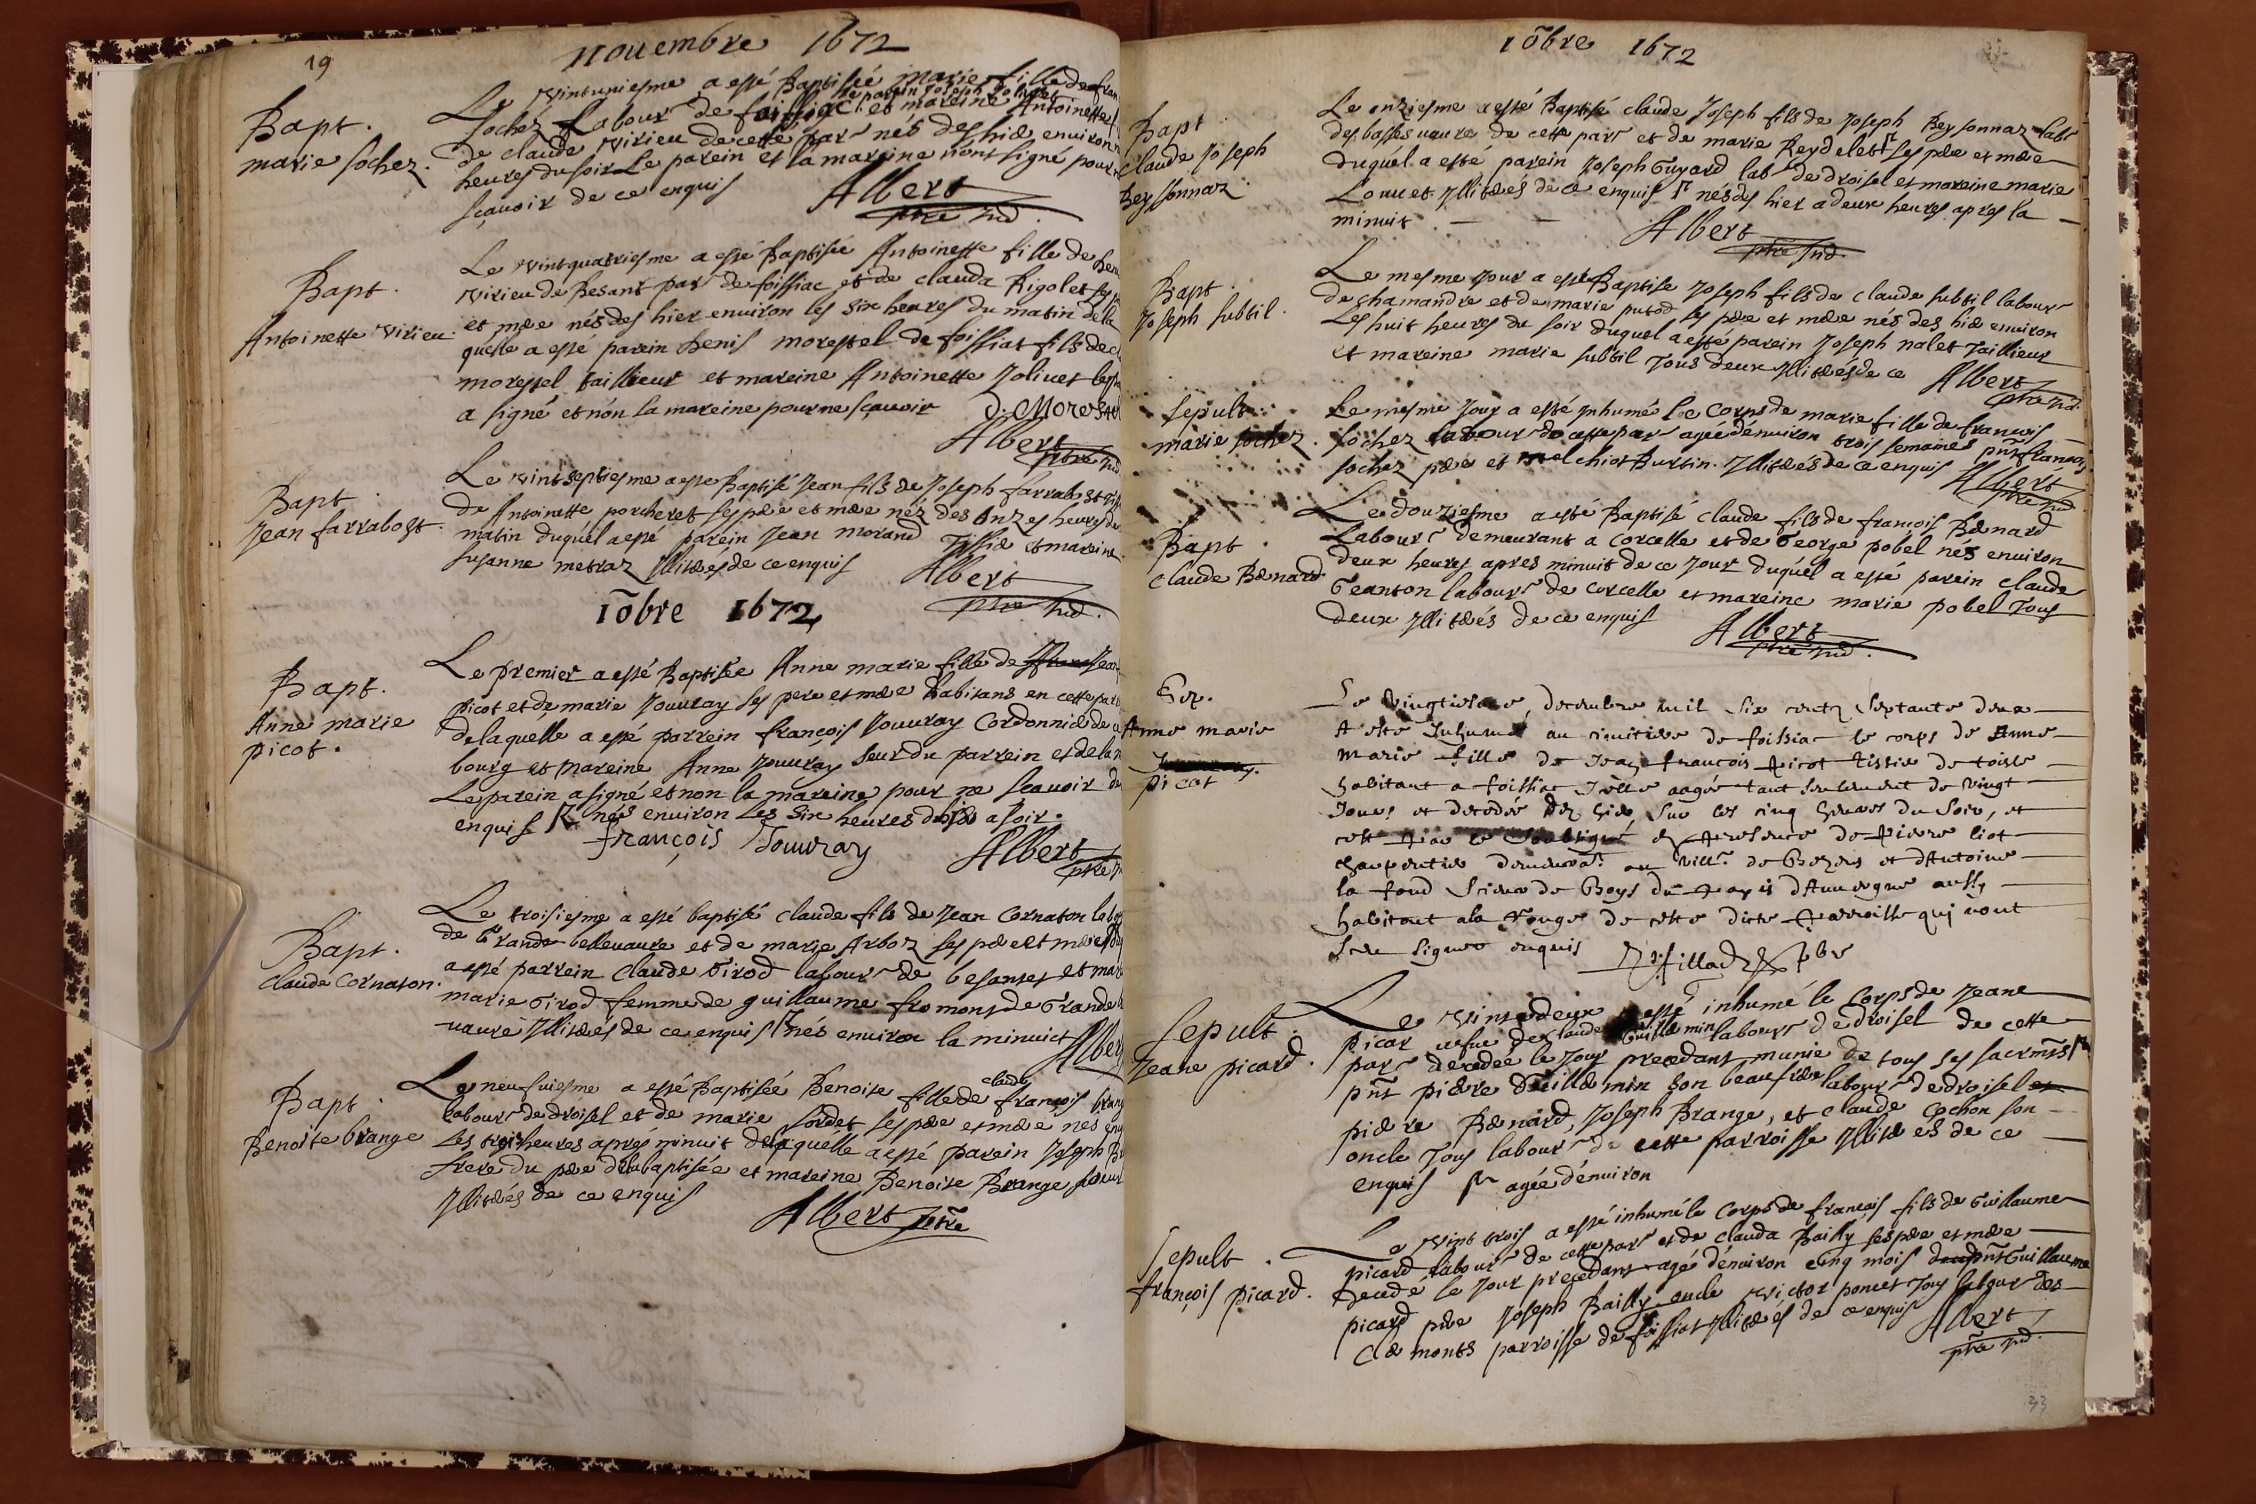 19
Nouembre 1672
Bapt.
marie sochez.
Le vintuniesme a esté Baptisée marie fille de fran
sochez Labour de foissiac et mareine Antoinette
le parein Joseph Joliuet
de claude virieu de cette par née des hier environ
heures du soir Le parein et la mareine n'ont signé pour
sçauoir de ce enquis Albert
ptre Ind.
Bapt.
Antoinette virieu.
Le vintquatriesme a esté Baptisée Antoinette fille de
virieu de Besant par de foissiac et de clauda Rigolet
et mere nés des hier environ les six heures du matin de la
quelle a esté parein Denis morestel de foissiat fils de
morestel taillieur et mareine Antoinette Joliuet le
a signé et non la mareine pour ne sçauoir D. Morestel
Albert
ptre Ind
Bapt
Jean farrabost.
Le vintseptiesme a esté Baptisé Jean fils de Joseph farrabost
de Antoinette porcheret ses pere et mere néz des Onzes heures de
matin duquel a esté parein Jean morand Tissie et mareine
susanne metraz Illiterés de ce enquis Albert
ptre Ind.
10bre 1672
Bapt.
Anne marie
picot.
Le premier a esté Baptisée Anne marie fille de Jean
picot et de marie Jouuray ses pere et mere habitans en cette par
de laquelle a esté parrein françois Jouuray Cordonnier de
bourg et mareine Anne Jouuray seur du parrein et de la
Le parein a signé et non la mareine pour ne sçauoir de
enquis née environ les six heures a soir.
françois Jouuray Albert
ptre
Bapt.
Claude Cornaton.
Le troisiesme a esté baptisé claude fils de Jean Cornaton
de Grande belleuaure et de marie Arboz ses pere et mere
a esté parrein Claude Girod labour de besantet et
marie Girod femme de guillaume fromont de Grande
uaure Illiterés de ce enquis nés environ la minuict Albert
Bapt.
Benoite brange
Le neufuiesme a esté Baptisée Benoite fille de françois
claude
labour de droisel et de marie sordet ses pere et mere nés
Les trois heures apres minuit de laquelle a esté parein Joseph
frere du pere de la baptisée et mareine Benoite Brange
Illiterés de ce enquis
Albert ptre
10bre 1672
Bapt.
Claude Joseph
Reyssonnaz.
Le onziesme a esté Baptisé claude Joseph fils de Joseph Reyssonnaz lab
des basses uaure de cette par et de marie Reydelet ses pere et mere
duquel a esté parein Joseph Guyard lab de droisel et mareine marie
Louuet Illiterés de ce enquis nés des hier a deux heures apres la
minuit
Albert
ptre Ind.
Bapt.
Joseph subtil.
Le mesme Jour a esté Baptise Joseph fils de Claude subtil labour
de chamandre et de marie putod ses pere et mere nés des hier environ
Les huit heures du soir duquel a esté parein Joseph nalet Taillieur
et mareine marie subtil Tous deux Illiterés de ce Albert
ptre Ind.
Sepult.
marie sochez.
Le mesme Jour a esté Inhumé Le Corps de marie fille de françois
sochez labour de cette par agée d'enuiron trois semaines pnt françois
sochez pere et melchiot Burtin. Illiterés de ce enquis Albert
ptre Ind
Bapt.
Claude Bernard
Le douziesme a esté Baptisé Claude fils de françois Bernard
Labour demeurant a Corcelle et de George pobel nés environ
deux heures apres minuit de ce Jour duquel a esté parein claude
Geanton labour de Corcelle et mareine marie pobel Tous
deux Illiterés de ce enquis Albert
ptre Ind.
Anne marie
picot
Le vingtiesme decembre mil six centz septante deux
A esté Inhumé au cimitiere de foissiac le corps de Anne
Marie fille de Jean francois picot Tissie de toille
habitant a foissiac Icelle aagée tant seulement de vingt
Jours et decedée dez hier sur les cinq heures du soir, et
cest par le soubsigné en presence de pierre liot
charpentier au vill. de et d'Antoine
la fond scieur de Boys du pays d'Auuergne aussy
habitant a la de cette dicte parroisse qui n'ont
sceu signer enquis
Sepult.
Jeane picard.
Le vint deux a esté inhumé le Corps de Jeane
picar uefue de claude Guillemin labour de droisel de cette
par decedée le Jour precedant munie de tous ses sacrmts
pnt pierre Guillemin son beaufrere labour de droisel
pierre Bernard, Joseph Brange, et claude Cochon son
oncle Tous labour de cette parroisse Illiterés de ce
enquis agée d'enuiron
Sepult.
françois picard.
Le vint trois a esté inhumé le Corps de françois fils de Guillaume
picard labour de cette par et de clauda Bailly ses pere et mere
decedé le Jour precedant agé d'enuiron cinq mois pnt Guillaume
picard pere Joseph Bailly oncle victor poncet Tous labour des
Clermonts parroisse de foissiat Illiterés de ce enquis
Albert
ptre Ind.
33